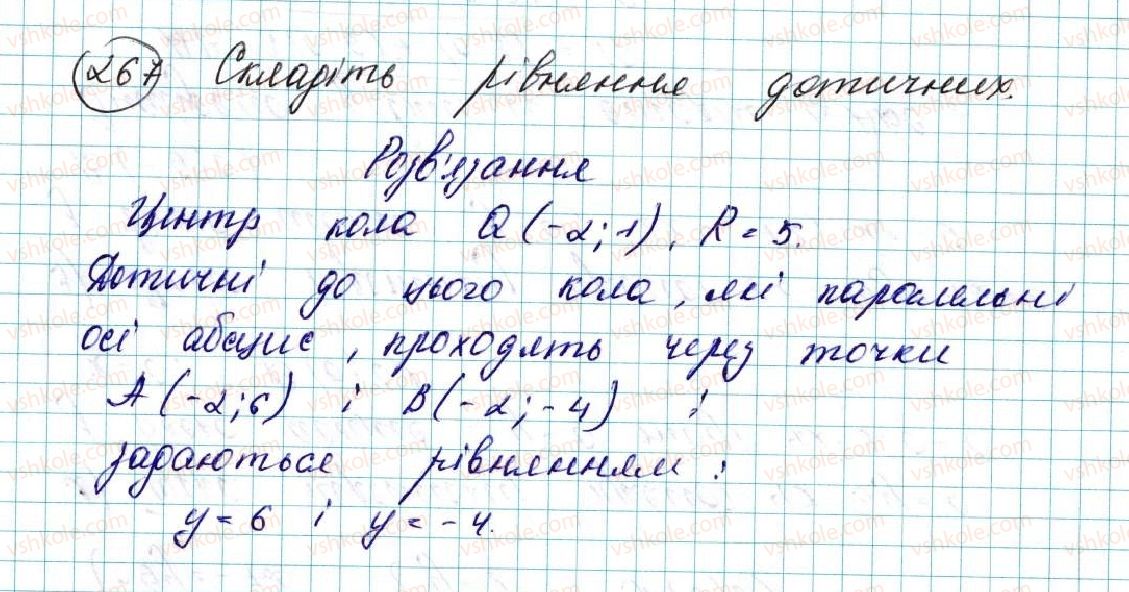 267 Складіть рівняння дотичних.
Розв'язання
Центр кола Q (-2; 1), R = 5.
Дотичні до цього кола, які паралельні
осі абсцис, проходять через точки
A (-2; 6) і B (-2; -4) і
задаються рівнянням:
y = 6 і y = -4.